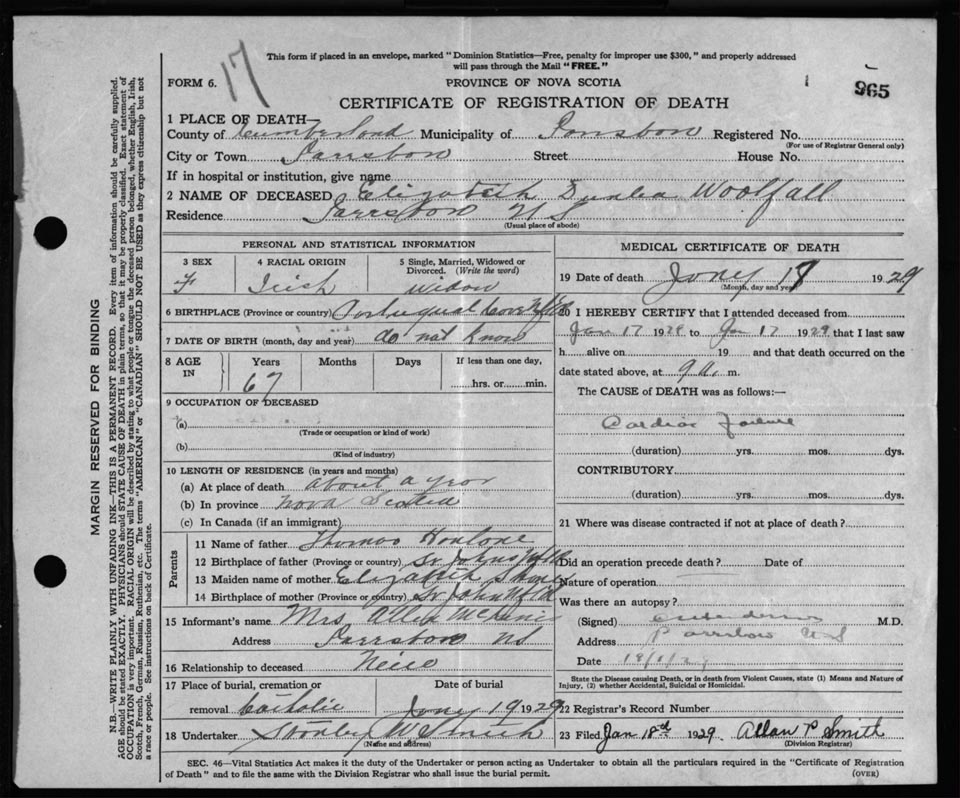 17
This form if placed in an envelope, marked "Dominion Statistics—Free, penalty for improper use $300," and properly addressed
will pass through the Mail "FREE."
FORM 6.
PROVINCE OF NOVA SCOTIA
965
CERTIFICATE OF REGISTRATION OF DEATH
1 PLACE OF DEATH
County of Cumberland Municipality of Parrsboro Registered No.
(For use of Registrar General only)
City or Town Parrsboro Street House No.
If in hospital or institution, give name
2 NAME OF DECEASED Elizabeth Woolfall
Residence Parrsboro N S
(Usual place of abode)
PERSONAL AND STATISTICAL INFORMATION
3 SEX 4 RACIAL ORIGIN 5 Single, Married, Widowed or Divorced. (Write the word)
F Irish Widow
6 BIRTHPLACE (Province or country) Portugual Cove Nfld
7 DATE OF BIRTH (month, day and year) do not know
8 AGE IN Years Months Days If less than one day,
67 hrs. or min.
9 OCCUPATION OF DECEASED
(a)
(Trade or occupation or kind of work)
(b)
(Kind of industry)
10 LENGTH OF RESIDENCE (in years and months)
(a) At place of death About a year
(b) In province Nova Scotia
(c) In Canada (if an immigrant)
Parents
11 Name of father Thomas
12 Birthplace of father (Province or country) St Johns Nfld
13 Maiden name of mother Elizabeth
14 Birthplace of mother (Province or country) St John Nfld
15 Informant's name Mrs
Address Parrsboro N S
16 Relationship to deceased Neice
17 Place of burial, cremation or Date of burial
removal Catholic Jany 19 1929
18 Undertaker Stanley W Smith
(Name and address)
MEDICAL CERTIFICATE OF DEATH
19 Date of death Jany 17 1929
(Month, day and year)
20 I HEREBY CERTIFY that I attended deceased from
Jan 17 1929 to Jan 17 1929 that I last saw
h alive on 19 and that death occurred on the
date stated above, at 9 a. m.
The CAUSE of DEATH was as follows:
Cardiac failure
(duration) yrs. mos. dys.
CONTRIBUTORY
(duration) yrs. mos. dys.
21 Where was disease contracted if not at place of death?
Did an operation precede death? Date of
Nature of operation
Was there an autopsy?
(Signed) M.D.
Address Parrsboro N S
Date 18/1/29
State the Disease causing Death, or in death from Violent Causes, state (1) Means and Nature of
Injury, (2) whether Accidental, Suicidal or Homicidal.
22 Registrar's Record Number
23 Filed Jan 18th 1929 Allan P Smith
(Division Registrar)
SEC. 46—Vital Statistics Act makes it the duty of the Undertaker or person acting as Undertaker to obtain all the particulars required in the "Certificate of Registration
of Death" and to file the same with the Division Registrar who shall issue the burial permit.
(OVER)
MARGIN RESERVED FOR BINDING
N.B.—WRITE PLAINLY WITH UNFADING INK—THIS IS A PERMANENT RECORD. Every item of information should be carefully supplied.
AGE should be stated EXACTLY. PHYSICIANS should STATE CAUSE OF DEATH in plain terms, so that it may be properly classified. Exact statement of
OCCUPATION is very important. RACIAL ORIGIN will be described by stating to what people or tongue the deceased person belonged, whether English, Irish,
Scotch, French, German, Russian, Ruthenian, etc. The terms "AMERICAN" or "CANADIAN" SHOULD NOT BE USED as they express citizenship but not
a race or people. See instructions on back of Certificate.